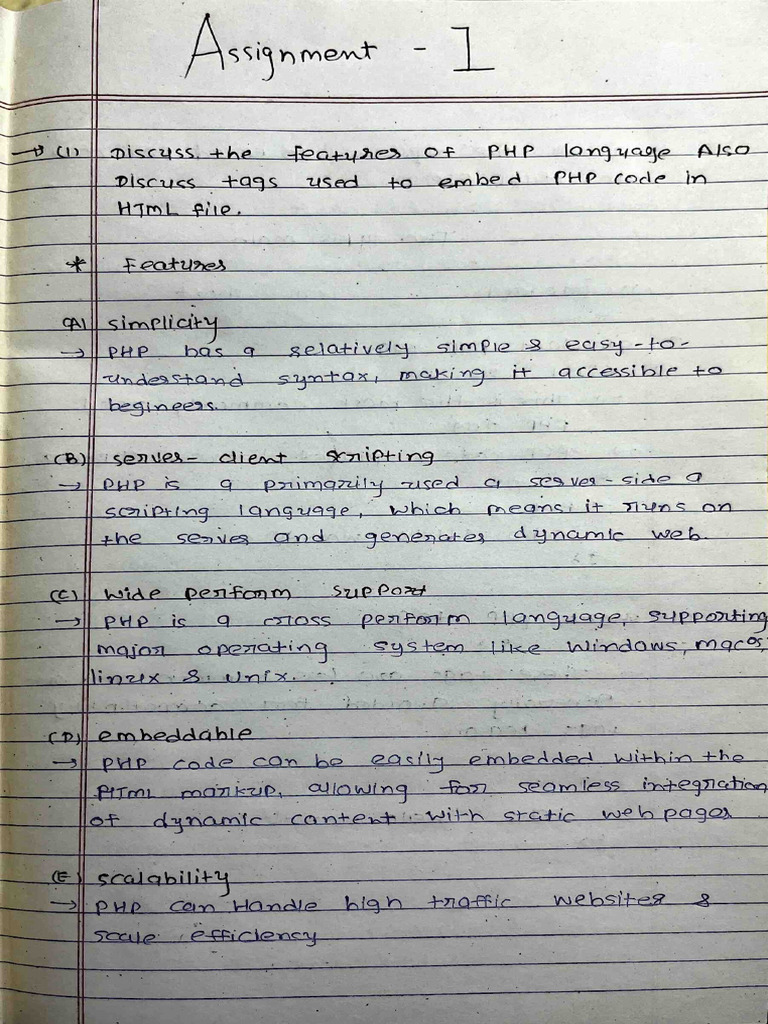 Assignment - 1
→ (1) Discuss the features of PHP language Also
Discuss tags used to embed PHP code in
HTML file.
* Features
(A) simplicity
→ PHP has a relatively simple & easy-to-
understand syntax, making it accessible to
begineers.
(B) server- client scripting
→ PHP is a primarily used a server-side a
scripting language, which means it runs on
the server and generates dynamic web.
(C) wide perform support
→ PHP is a cross perform language, supporting
major operating system like windows, macos,
linux & unix.
(D) embeddable
→ PHP code can be easily embedded within the
HTML markup, allowing for seamless integration
of dynamic content with static web pages
(E) scalability
→ PHP can Handle high traffic websites &
scale efficiency